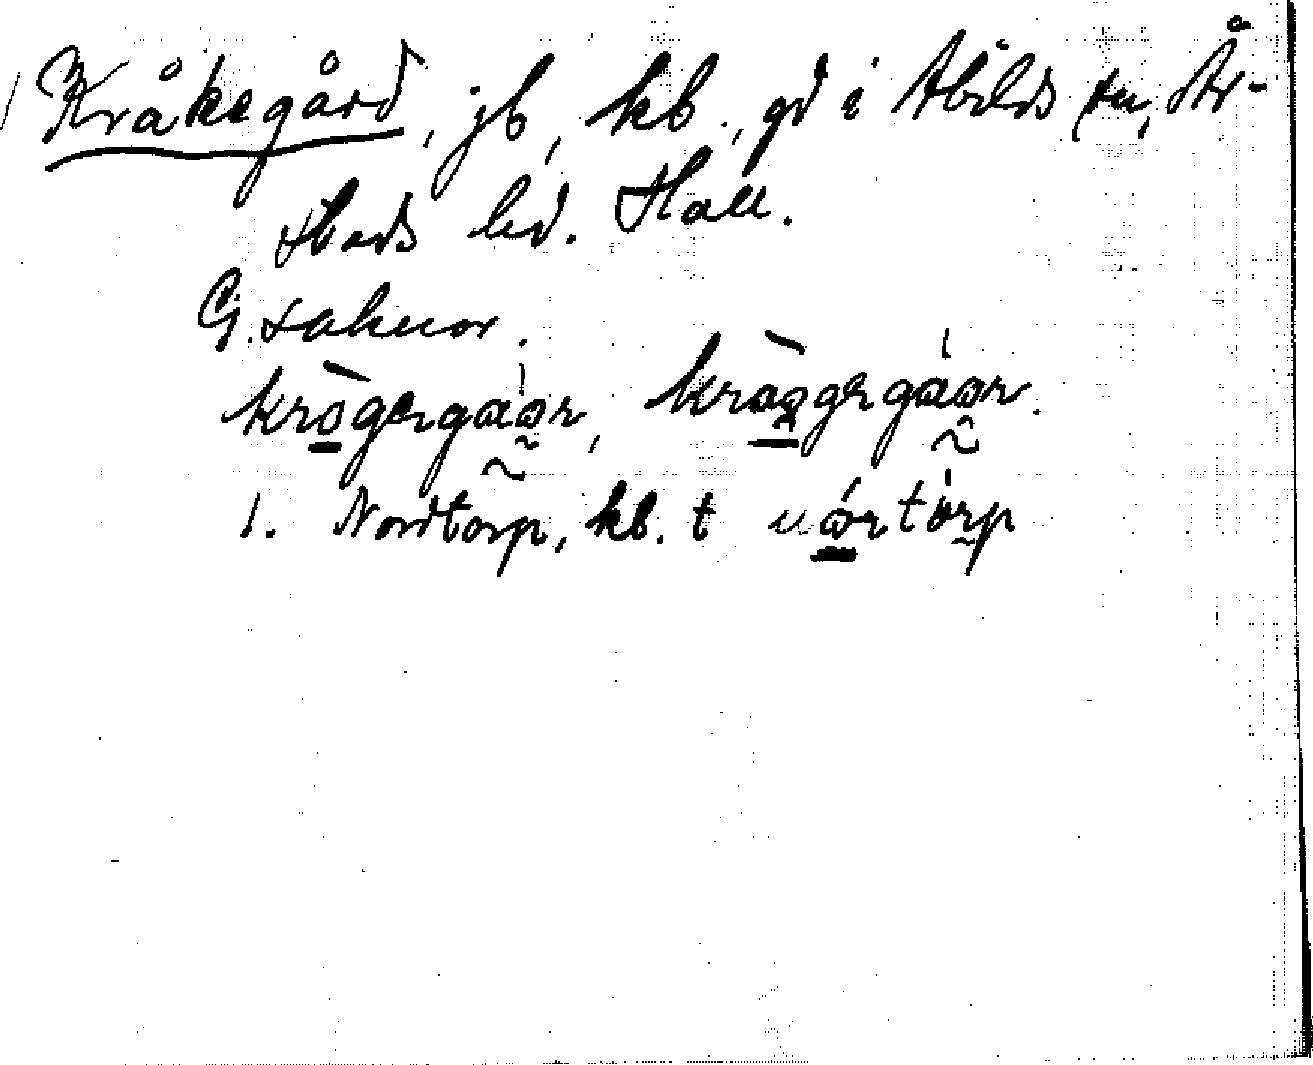 Kråkegård, jb, kb., gd i Abilds sn, År-
stads hd. Hall.
G. saknar.
krògergáar, kràgergáar.
1. Nordtorp, kb. t nórtórp